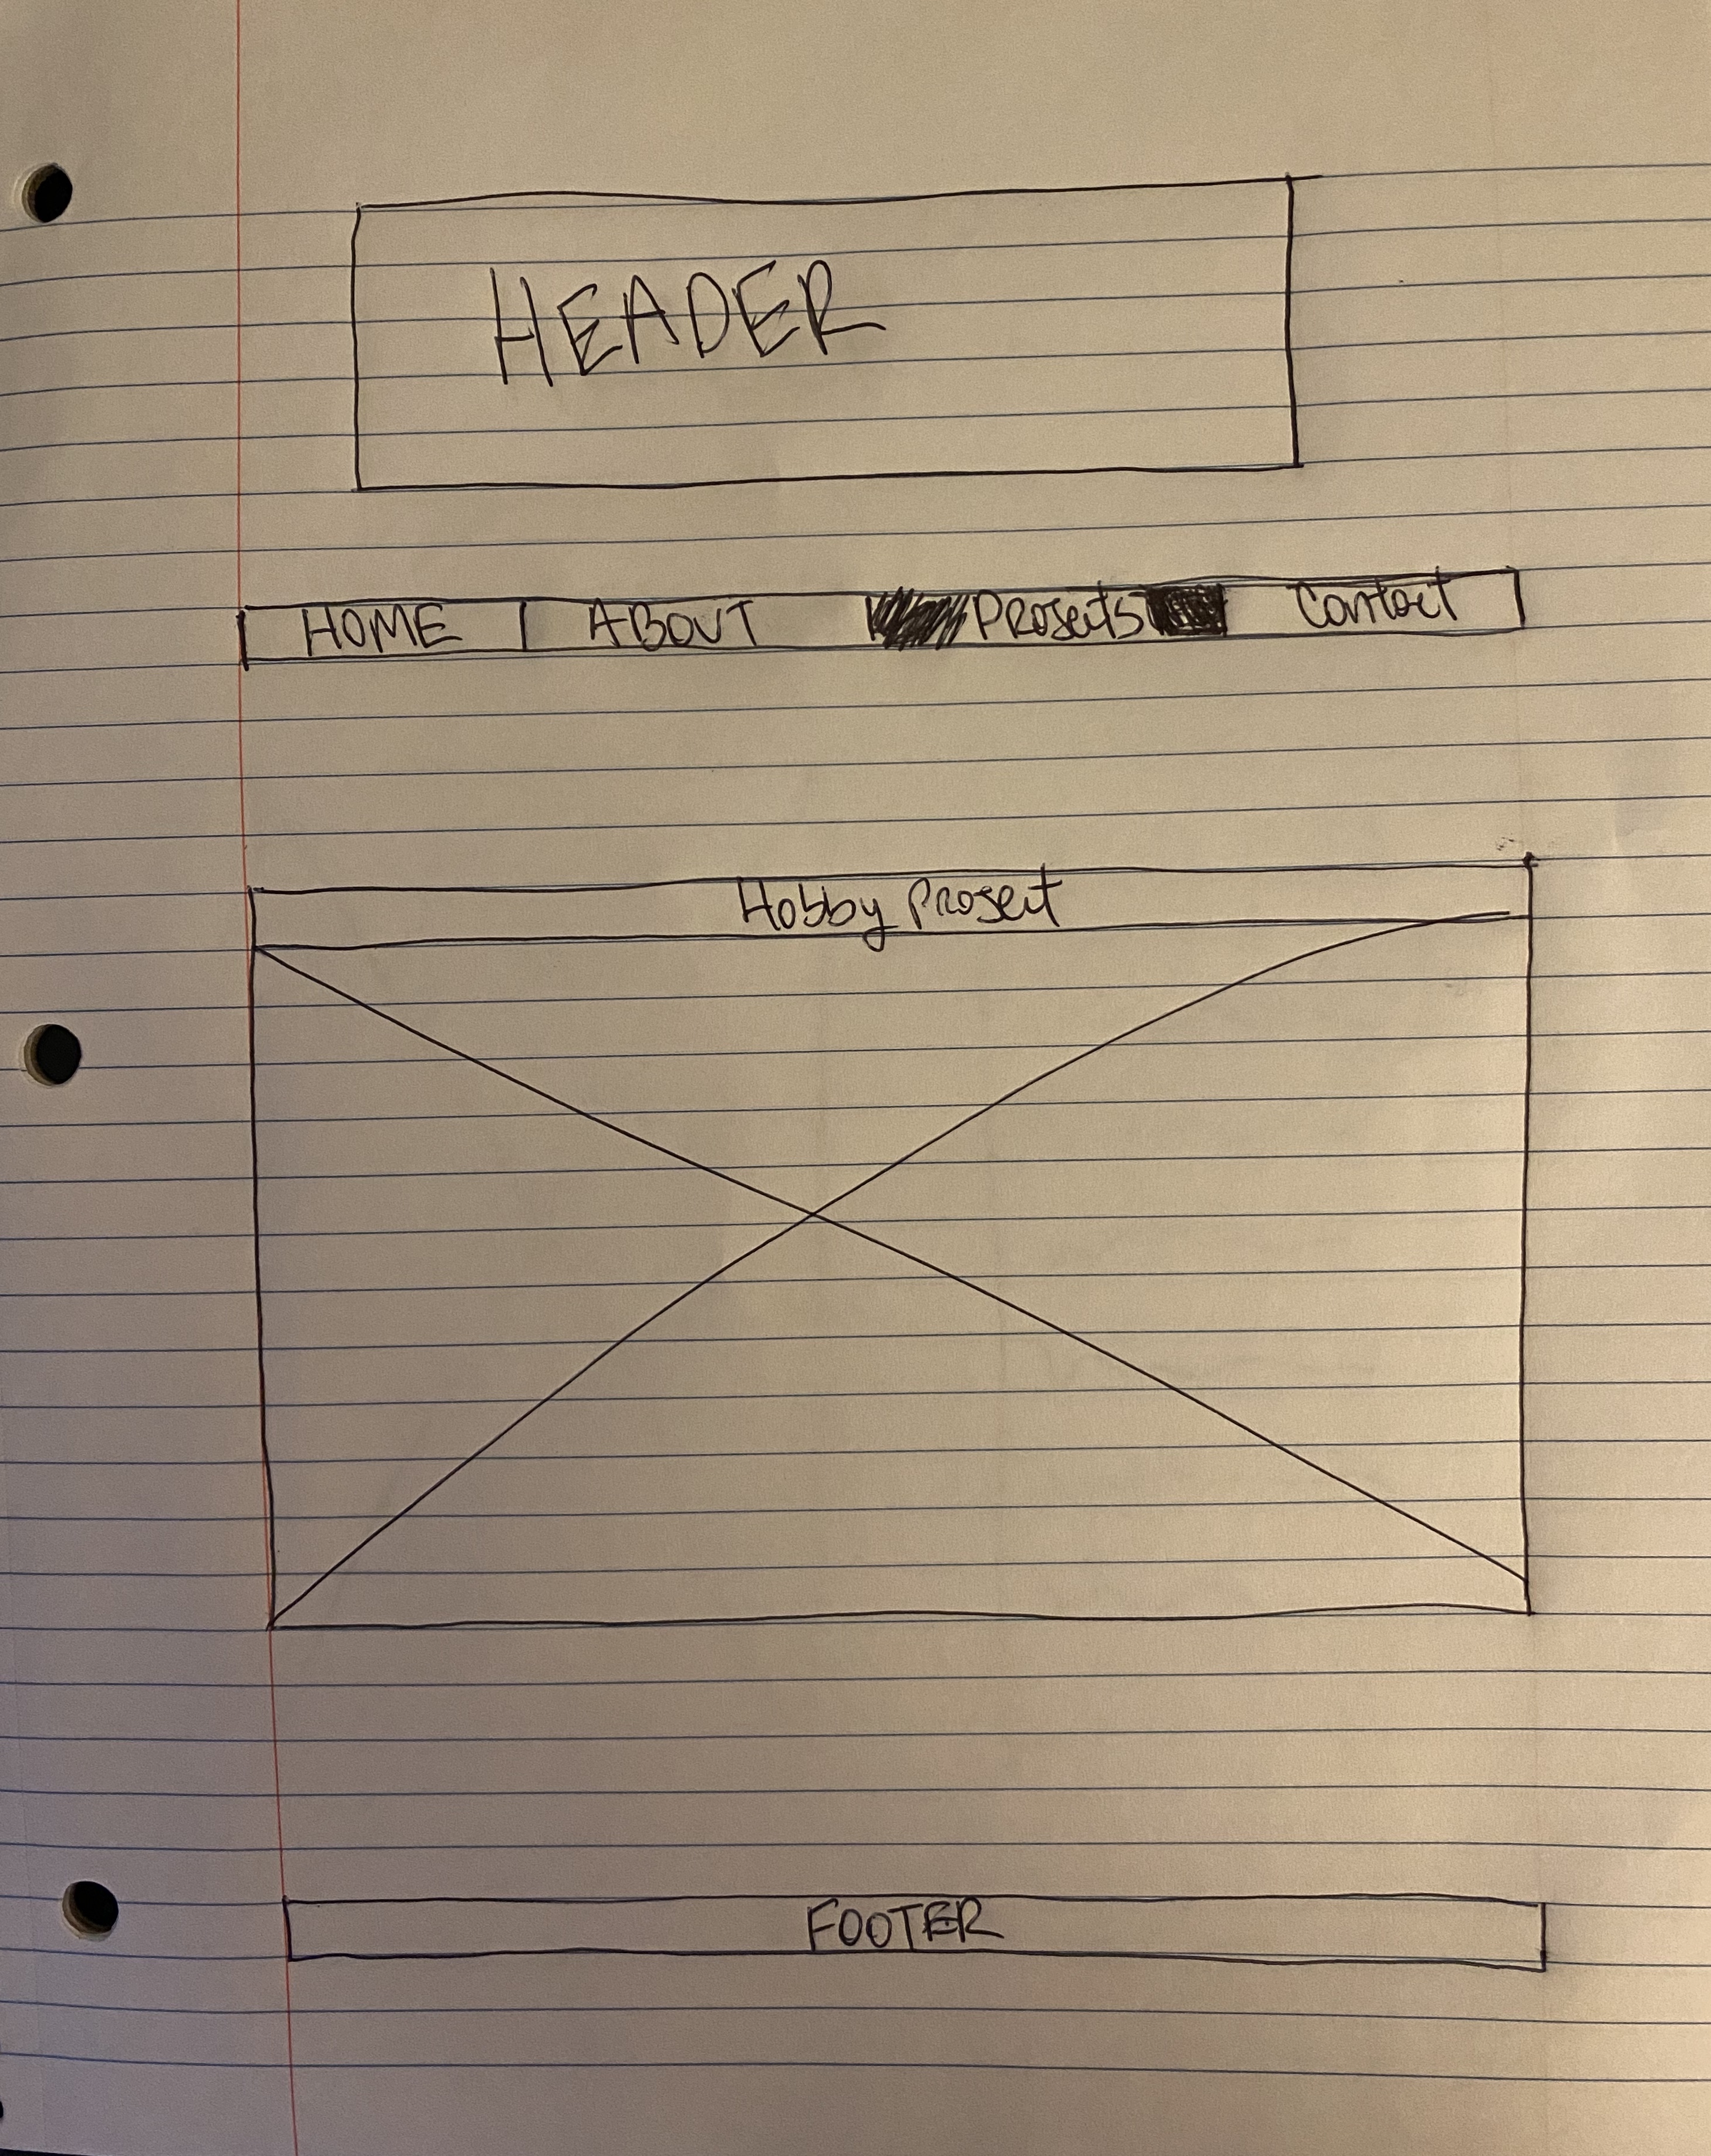 HEADER
HOME ABOUT Projects Contact
Hobby Project
FOOTER